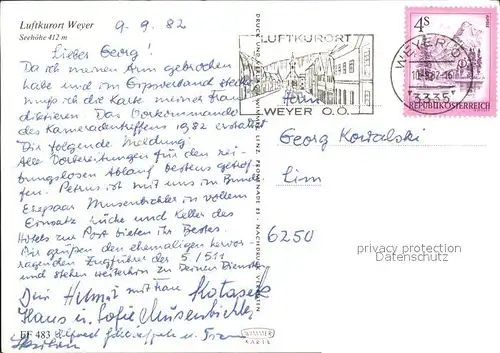 Luftkurort Weyer
Seehöhe 412 m
9. 9. 82
Lieber Georg!
Da ich meinen Arm gebrochen
habe und im Gipsverband stecke
muß ich die Karte meiner Frau
diktieren. Das Vorkommando
des Kameradentreffens 1982 erstattet
Dir folgende Meldung:
Alle Vorbereitungen für den rei-
bungslosen Ablauf bestens getrof-
fen. Petrus ist mit uns im Bunde
Ehepaar Musenbichler in vollem
Einsatz Küche und Keller des
Hotels zur Post bieten ihr Bestes.
Wir grüßen den ehemaligen hervor-
ragenden Zugführer der 5/511
und stehen weiterhin zu Deinen Diensten
Dein Helmut mit Frau
Hans u. Sofie Musenbichler
Alfred u. Frau
EF 483
LUFTKURORT
WEYER O.Ö.
WEYER
3335
4S
REPUBLIK ÖSTERREICH
Herrn
Georg Kowalski
6250
privacy protection
Datenschutz
WIMMER
KARTE